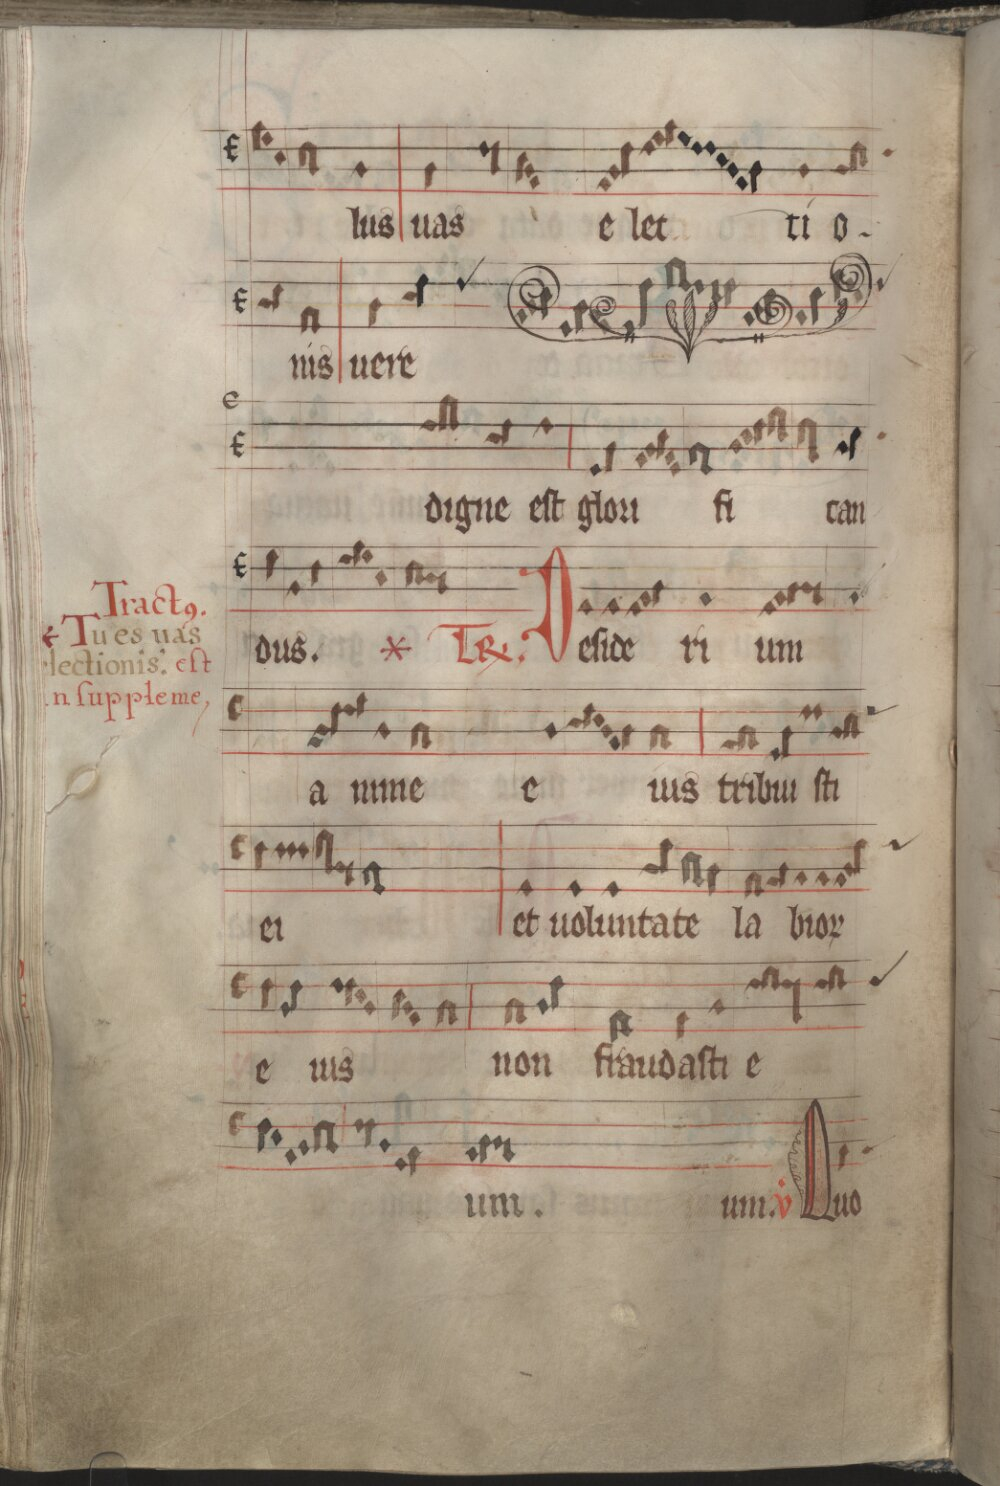 lus uas e lec ti o-
nis uere
digne est glori fi can
dus. * TR: Deside ri um
Tractq.
Tu es uas
lectionis. est
n suppleme,
a nime e ius tribui sti
ei et uoluntate la bioꝝ
e ius non fraudasti e
um. um. v̇ Quo